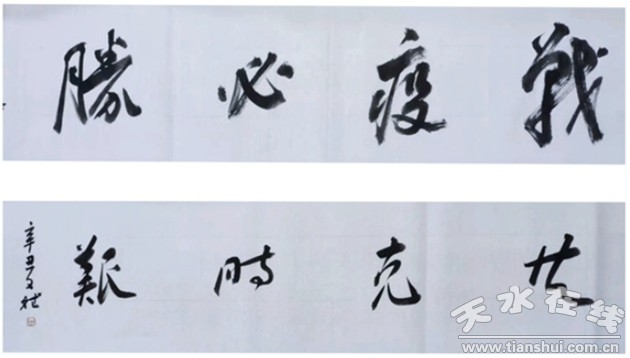 戰疫必勝
共克時艱
辛丑
天水在线
www.tianshui.com.cn